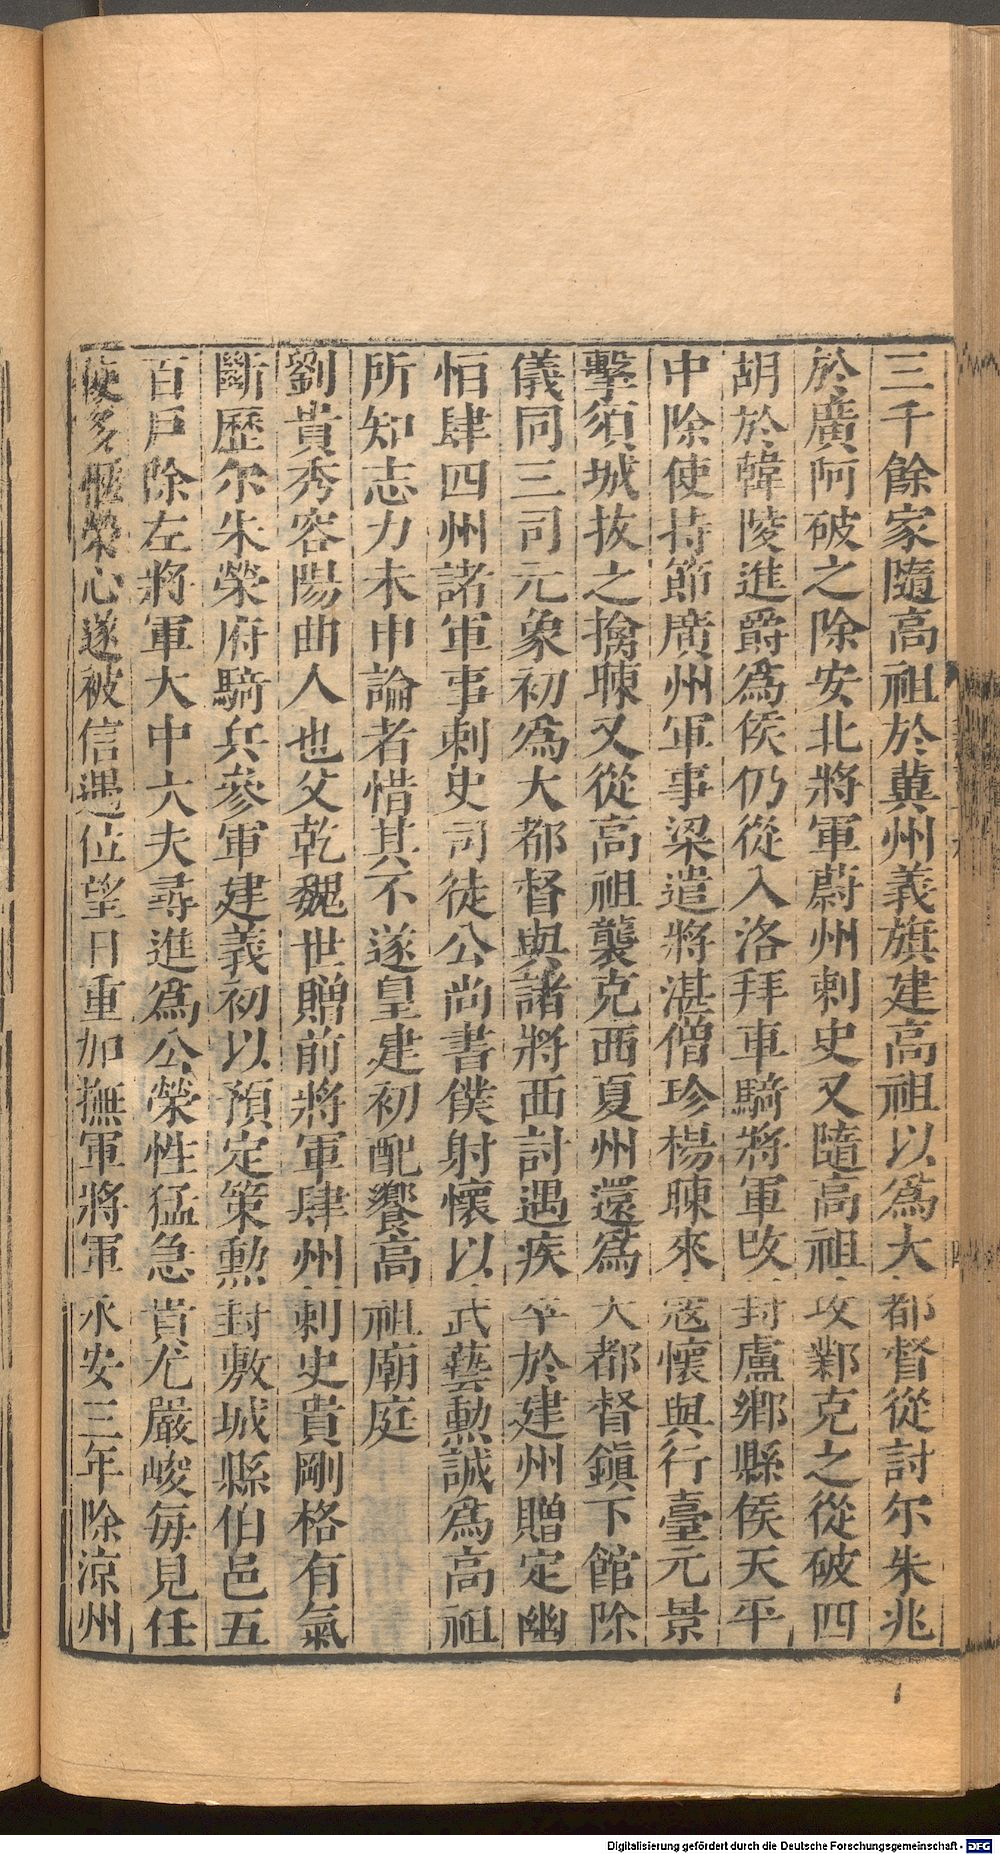 三千餘家隨高祖於冀州義旗建高祖以爲大都督從討尔朱兆
於廣阿破之除安北將軍蔚州刺史又隨高祖攻鄴克之從破四
胡於韓陵進爵爲侯仍從入洛拜車騎將軍改封盧鄉縣侯天平
中除使持節廣州軍事梁遣將湛僧珍楊暕來寇懷與行臺元景
擊須城拔之擒暕又從高祖襲克西夏州還爲大都督鎮下館除
儀同三司元象初爲大都督與諸將西討遇疾卒於建州贈定幽
恒肆四州諸軍事刺史司徒公尚書僕射懷以武藝勲誠爲高祖
所知志力未申論者惜其不遂皇建初配饗高祖廟庭
劉貴秀容陽曲人也父乾魏世贈前將軍肆州刺史貴剛格有氣
斷歷尔朱榮府騎兵參軍建義初以預定策勲封敷城縣伯邑五
百戶除左將軍大中大夫尋進爲公榮性猛急貴尤嚴峻每見任
使多愜榮心遂被信遇位望日重加撫軍將軍永安三年除涼州
Digitalisierung gefördert durch die Deutsche Forschungsgemeinschaft - DFG